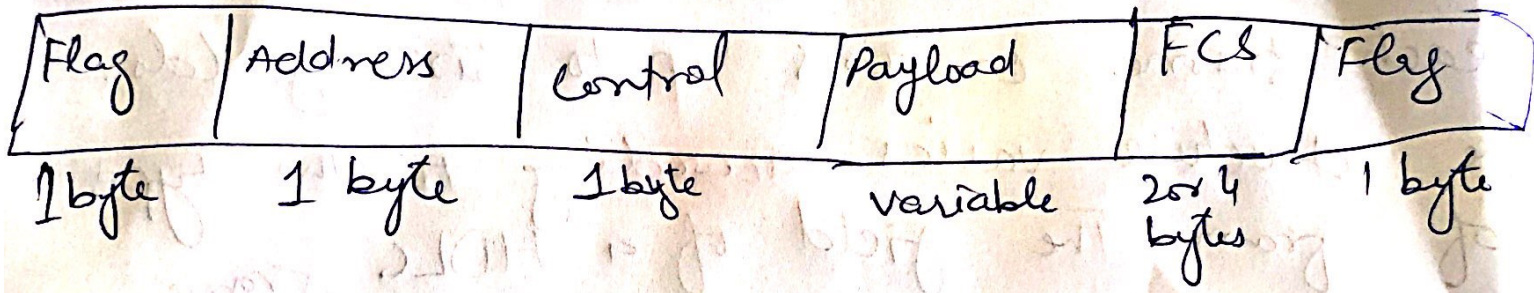 Flag Address Control Payload FCS Flag
1 byte 1 byte 1 byte variable 2 or 4 bytes 1 byte